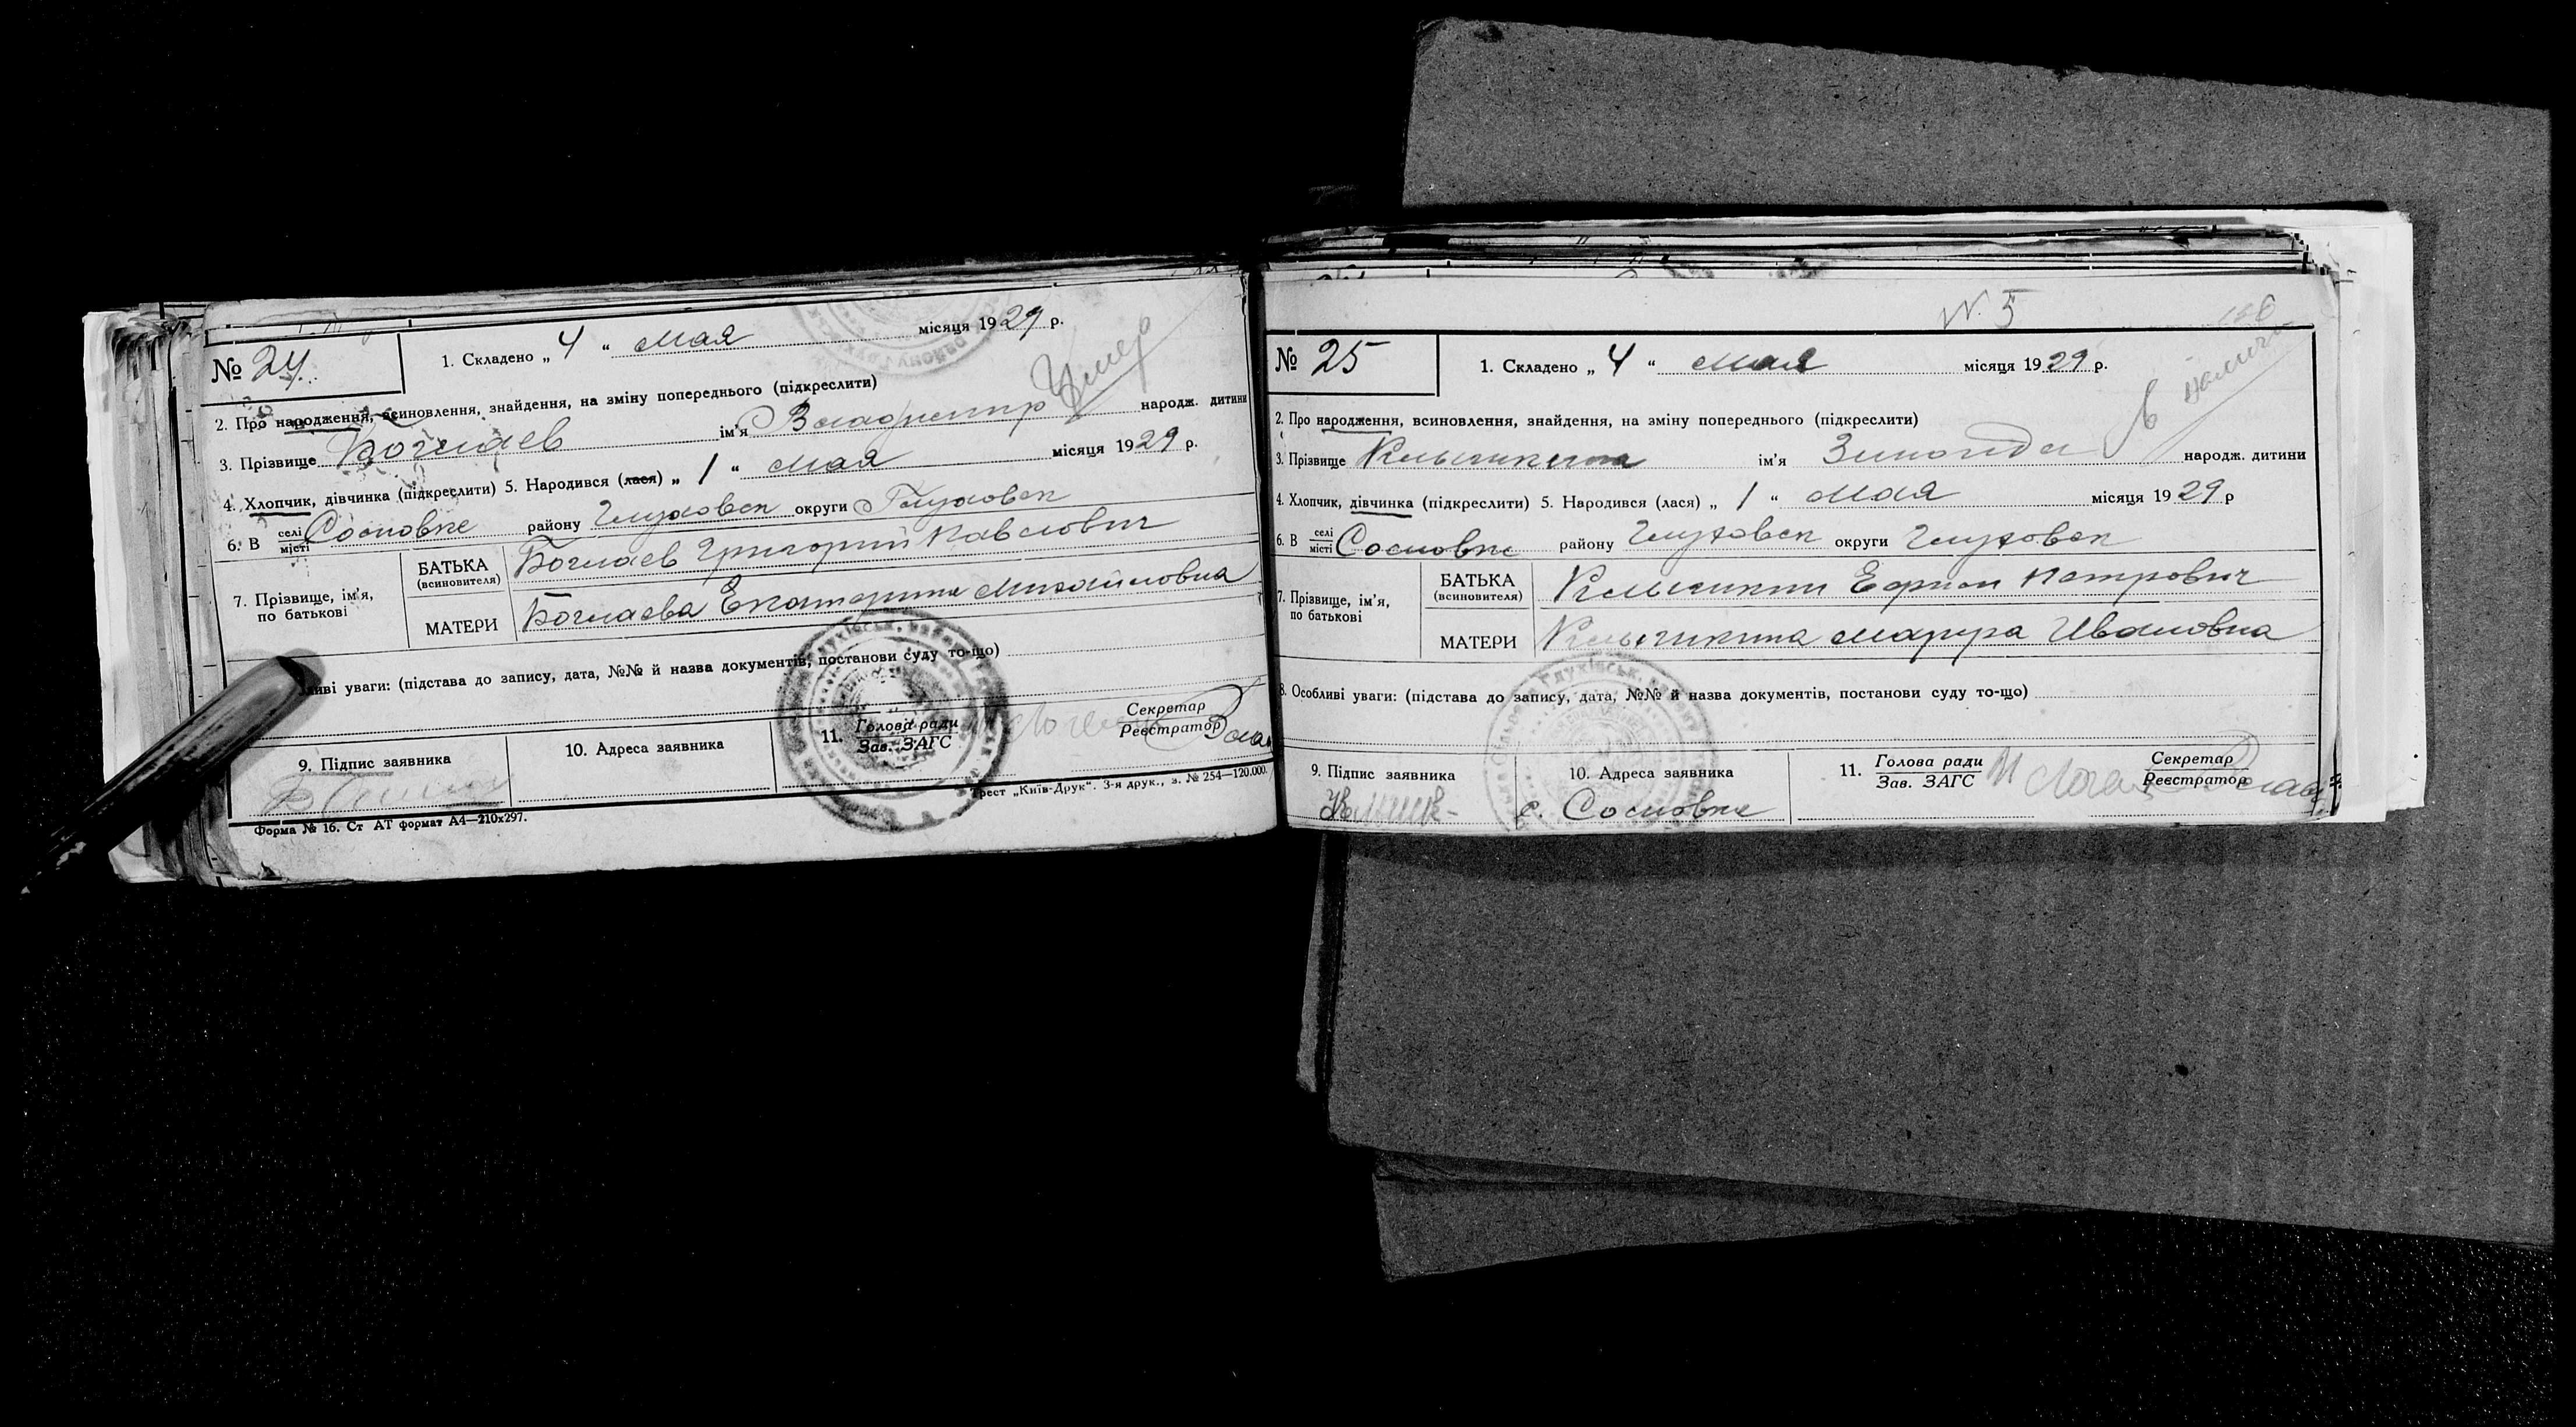 № 24
1. Складено „ 4 “ мая місяця 1929 р.
2. Про народження, всиновлення, знайдення, на зміну попереднього (підкреслити)
3. Прізвище Боглаев ім'я Владимир народж. дитини
Умер
4. Хлопчик, дівчинка (підкреслити) 5. Народився (лася) „ 1 “ мая місяця 1929 р.
6. В селі місті Сосновке району Глуховск округи Глуховск
7. Прізвище, ім'я, по батькові
БАТЬКА (всиновителя) Боглаев Григорий Павлович
МАТЕРИ Боглаева Екатерина Михайловна
уваги: (підстава до запису, дата, №№ й назва документів, постанови суду то-що)
9. Підпис заявника
10. Адреса заявника
11. Голова ради Зав. ЗАГС
Секретар Реєстратор
Форма № 16. Ст АТ формат А4—210х297.
Трест „Київ-Друк“. 3-я друк., з. № 254—120.000.
N. 5
№ 25
1. Складено „ 4 “ мая місяця 1929 р.
2. Про народження, всиновлення, знайдення, на зміну попереднього (підкреслити)
3. Прізвище ім'я Зинаида народж. дитини
4. Хлопчик, дівчинка (підкреслити) 5. Народився (лася) „ 1 “ мая місяця 1929 р
6. В селі місті Сосновке району Глуховск округи Глуховск
7. Прізвище, ім'я, по батькові
БАТЬКА (всиновителя) Ефим Петрович
МАТЕРИ Марфа Ивановна
8. Особливі уваги: (підстава до запису, дата, №№ й назва документів, постанови суду то-що)
9. Підпис заявника
10. Адреса заявника
с. Сосновке
11. Голова ради Зав. ЗАГС
Секретар Реєстратор